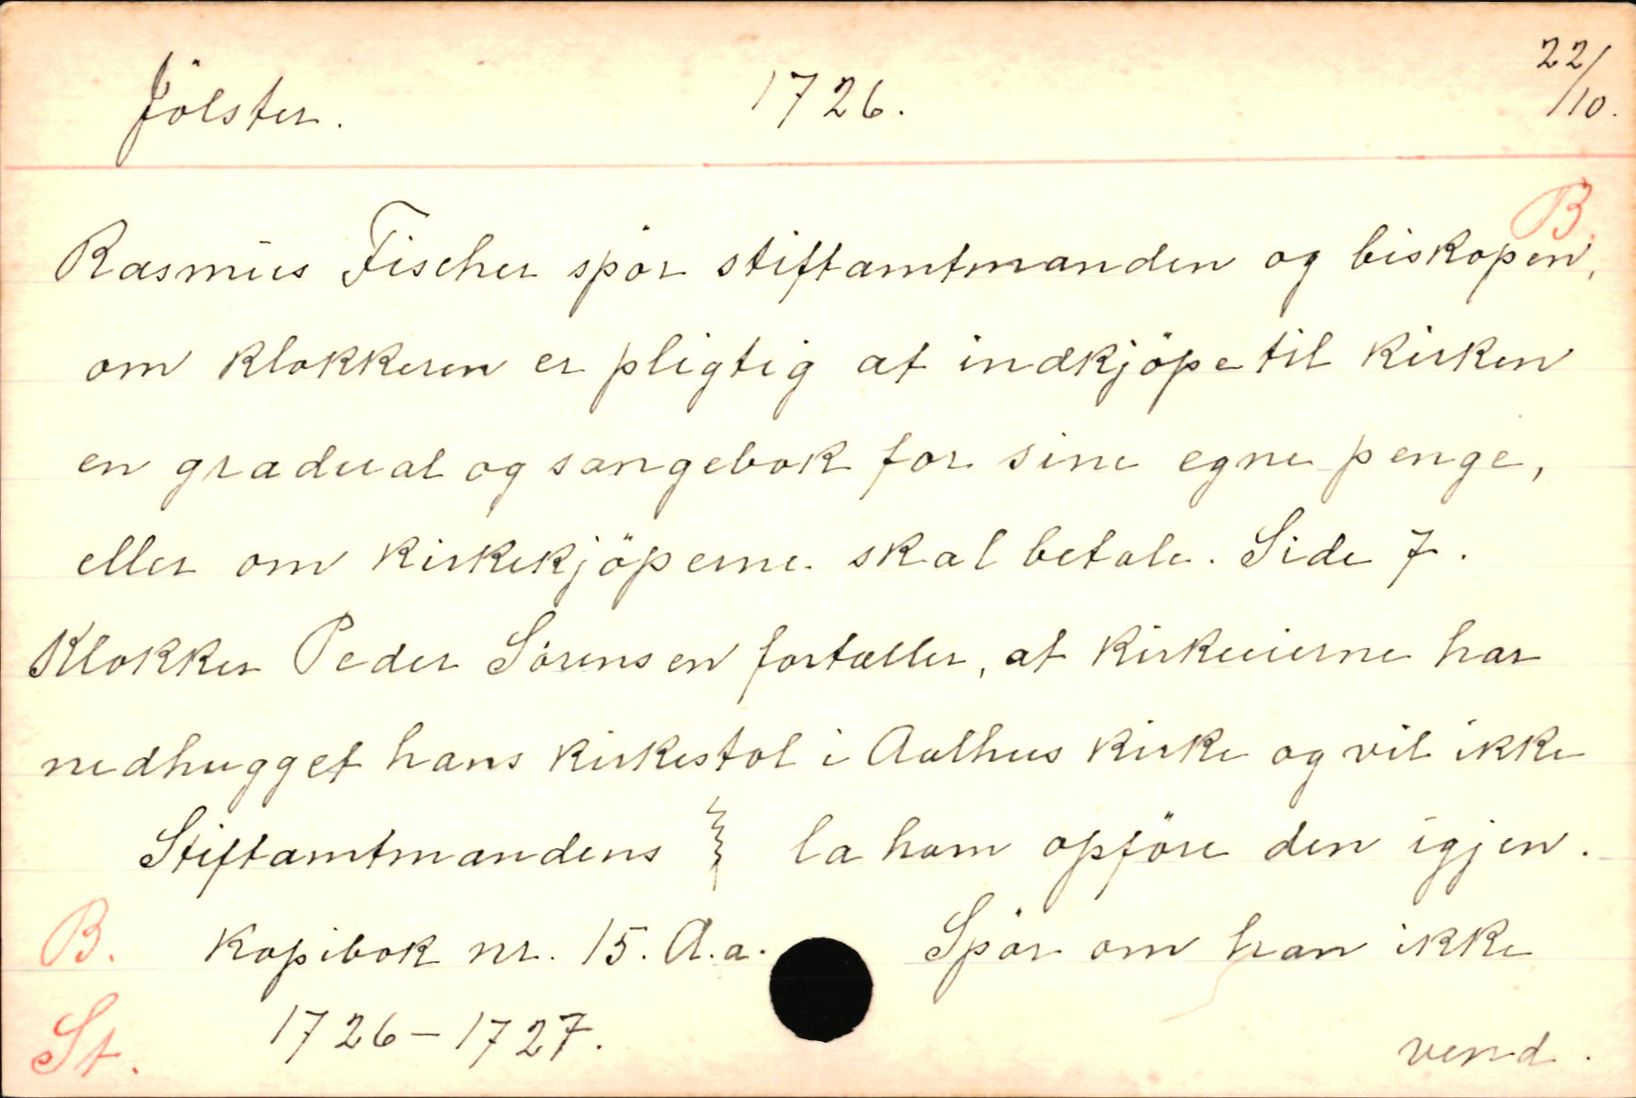 Jölster. 1726. 22/10.
B.
Rasmus Fischer spör stiftamtmanden og biskopen,
om klokkeren er pligtig at indkjöpe til kirken
en gradual og sangebok for sine egne penge,
eller om kirkekjöperne skal betale. Side 7.
Klokker Peder Sörensen fortæller, at kirkeeierne har
nedhugget hans kirkestol i Aalhus kirke og vil ikke
Stiftamtmandens la ham opföre den igjen.
B. Kopibok nr. 15. A.a. Spör om han ikke
St. 1726-1727. vend.